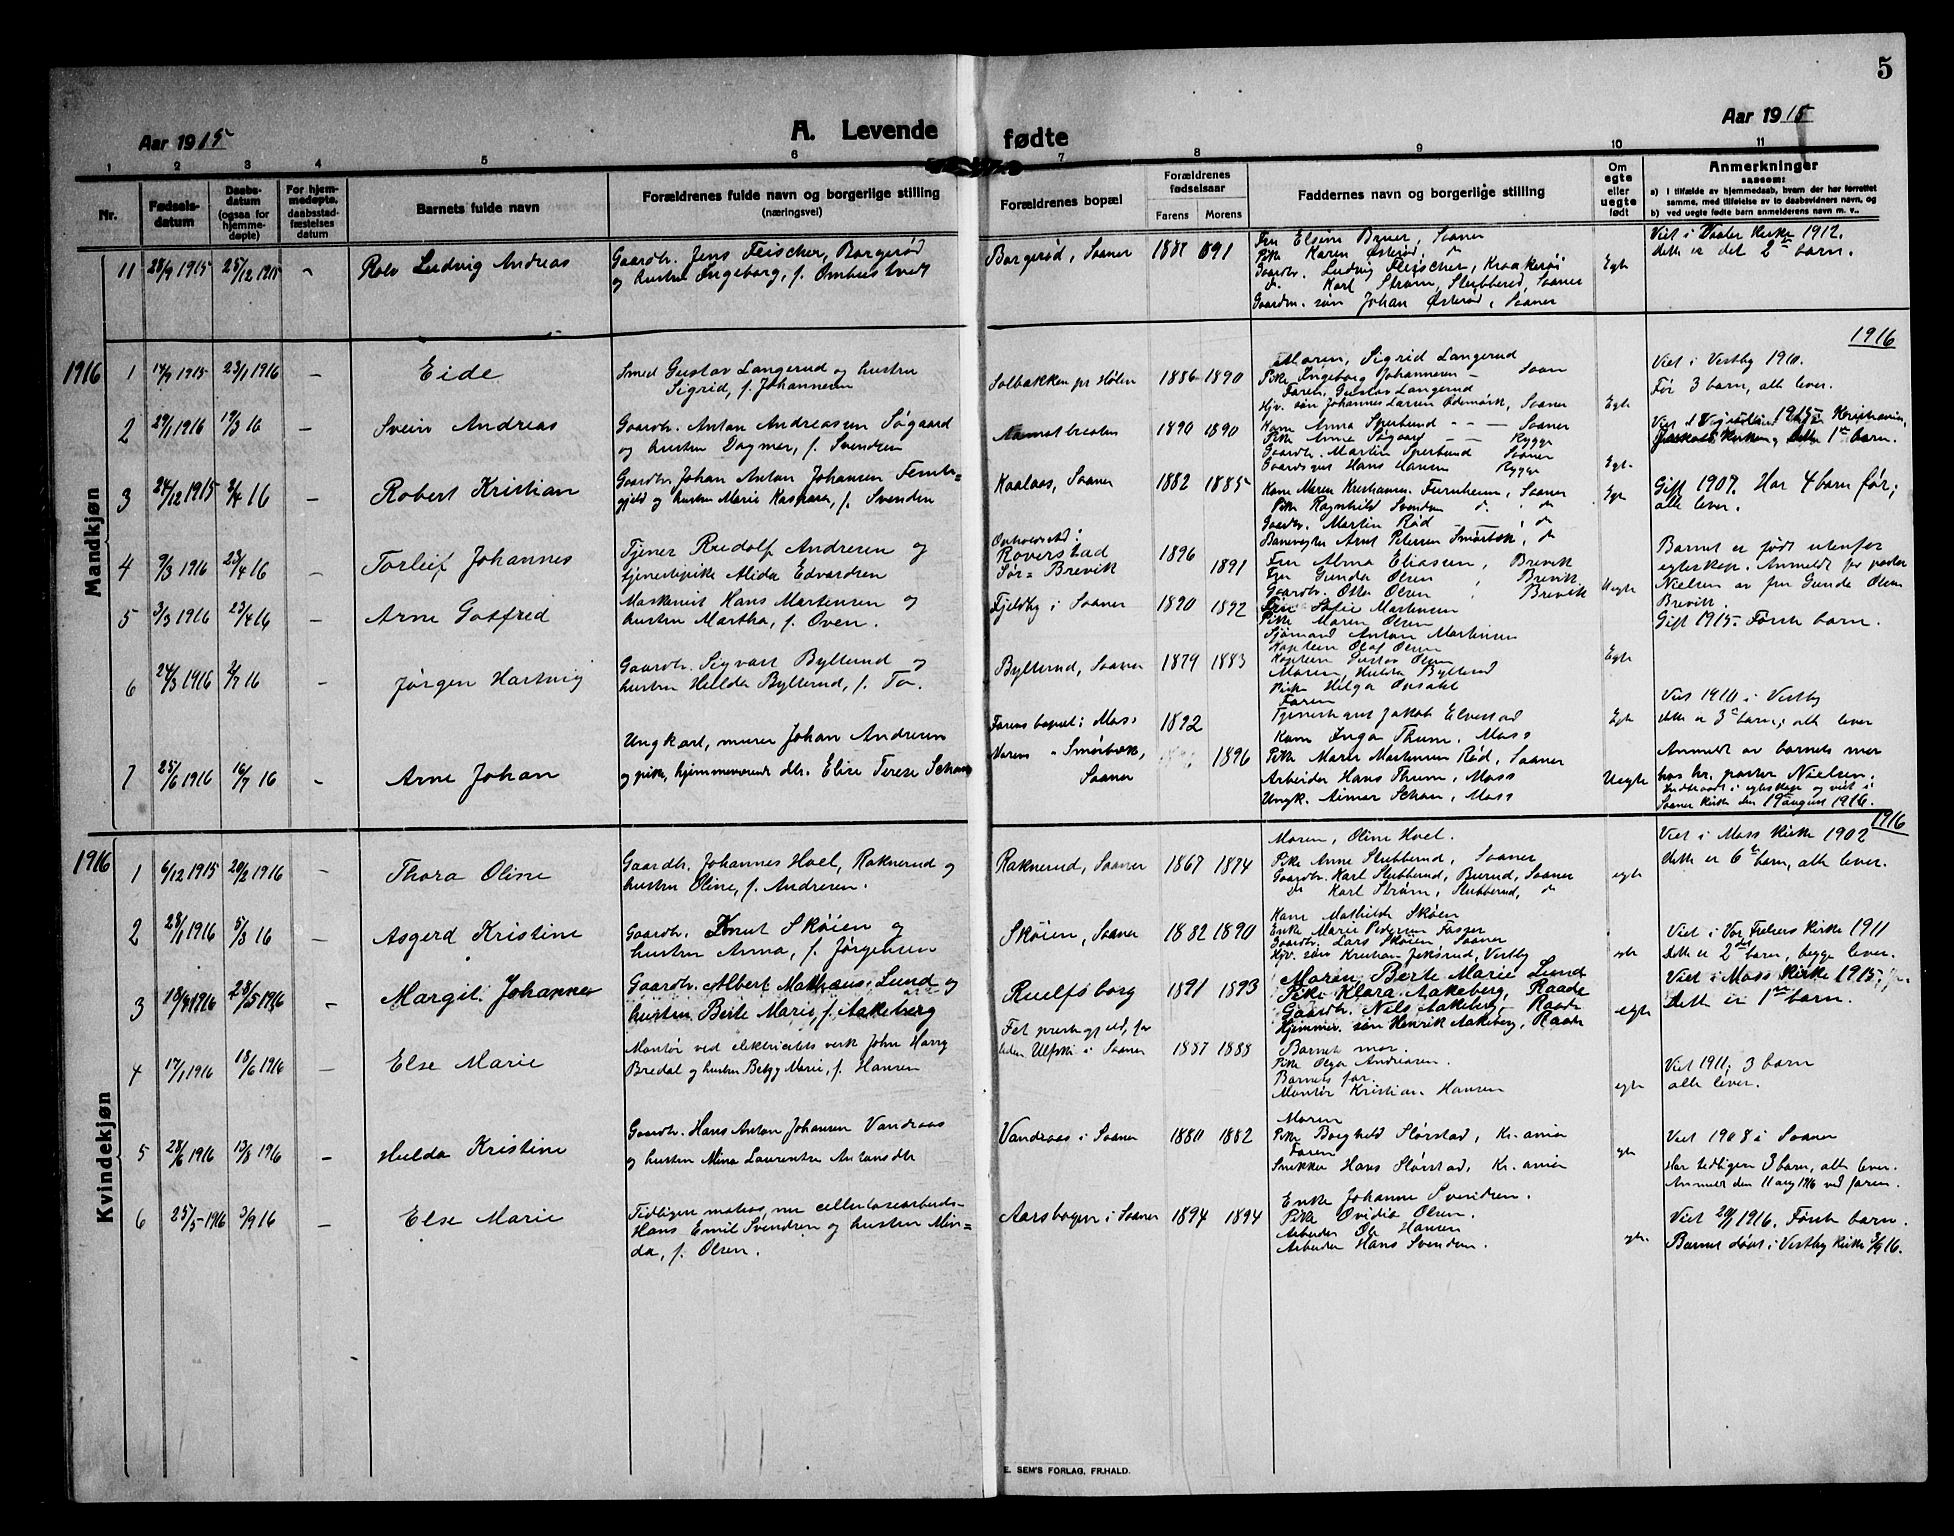 5
Aar 1915
A. Levende fødte
Aar 1915
1 2 3 4 5 6 7 8 9 10 11
Nr.
Fødsels-
datum
Daabs-
datum
(ogsaa for
hjemme-
døpte)
For hjem-
medøpte,
daabsstad-
fæstelses
datum
Barnets fulde navn
Forældrenes fulde navn og borgerlige stilling
(næringsvei)
Forældrenes bopæl
Forældrenes
fødselsaar
Farens Morens
Faddernes navn og borgerlige stilling
Om
egte
eller
uegte
født
Anmerkninger
saasom:
a) I tilfælde av hjemmedaab, hvem der har forrettet
samme, med tilføielse av to daabsvidners navn, og
b) ved uegte fødte barn anmelderens navn m. v..
11 28/9 1915 25/12 1915 -
Rolv Ludvig Andreas
Gaardbr. Jens Fleischer, Borgerød
og hustru Ingeborg, f. Ombustvedt
Borgerød, Saaner
1891
Fru Elsine Bruer, Saaner
Pike Karen Østerød, do
Gaardbr. Ludvig Fleischer, Kraakerøi
do. Karl Strøm, Slubberud, Saaner
Gaardm. søn Johan Østerød, Saaner
Egte
Viet i Vaaler kirke 1912.
dette er det 2de barn.
1916
Mandkjøn
1916
1 14/9 1915 23/1 1916 -
Eide
Smed Gustav Langerud og hustru
Sigrid, f. Johannesen
Solbakken pr Hølen
1886 1890
Moren, Sigrid Langerud
Pike Ingeborg Johannesen - Saan
Faren, Gustav Langerud
Hjv. søn Johannes Larsen Ødemørk, Saaner
Egte
Viet i Vestby 1910.
Før 3 barn, alle lever.
2 29/1 1916 19/3 16 -
Svein Andreas
Gaardbr. Anton Andreassen Søgaard
og hustru Dagmar, f. Svendsen
1890 1890
Kone Anna Sperbund - - - Saaner
Pike Anne Søgaard - - Rygge
Gaardbr. Martin Sperbund Saaner
Gaardsgut Hans Hansen Rygge
Egte.
Kristiania,
Jakobskirken, Dette 1ste barn.
3 24/12 1915 2/4 16 -
Robert Kristian
Gaardbr. Johan Anton Johansen Fembs=
gjeld og hustru Marie Kaspara, f. Svendsen
Kaalaas, Saaner
1882 1885
Kone Maren Kristiansen Furnheim, Saaner
Pike Ragnhild Svendsen do. do
Gaardbr. Martin Rød do
Banevogter Arnt Petersen Smørbæk, do
Egte
Gift 1907. Har 4 barn før;
alle lever.
4 9/3 1916 23/4 16 -
Torleif Johannes
Tjener Rudolf Andresen og
tjenestepike Alida Edvardsen
Opholdssted:
Røverstad
Sør= Brevik
1896
1891
Fru Alma Eliasen, Brevik
Fru Gunda Olsen Brevik
Gaardbr. Otto Olsen, Brevik
Uegte
Barnet er født utenfor
egteskap. Anmeldt for pastor
Nielsen av fru Gunda Olsen
Brevik.
5 3/3 1916 23/4 16 -
Arne Gotfred
Maskinist Hans Martensen og
hustru Martha, f. Oven.
Fjeldby i Saaner
1890 1892
Fru Sofie Martensen
Pike Maren Olsen
Sjømand Anton Martinsen
Kaptein Olaf Olsen
Kaptein Gustav Olsen
Egte
Gift 1915. Første barn.
6 24/3 1916 2/7 16 -
Jørgen Hartvig
Gaardbr. Sigvart Bylterud og
hustru Hulda Bylterud, f. To.
Bylterud, Saaner
1879 1883
Moren, Hulda Bylterud
Pike Helga Opsahl
Faren
Tjenestegut Jakob Elvestad
Egte
Viet 1910 i Vestby
dette er 3de barn; alle lever
7 25/6 1916 16/7 16 -
Arne Johan
Ungkarl, murer Johan Andresen
og pike, hjemmeværende dtr. Elise Terese Schou
Farens bopæl i Moss
Morens " Smørbæk,
Saaner
1892
1896
Kone Inga Thum, Moss
Pike Marie Martinsen Rød, Saaner
Arbeider Hans Thum, Moss
Ungk. Aimar Schou, Moss
Uegte
Anmeldt av barnets mor
hos hr. pastor Nielsen.
Indtraadt i egteskap og viet i
Saaner kirke den 19de august 1916.
1916
Kvindekjøn
1916
1 6/12 1915 20/2 1916 -
Thora Oline
Gaardbr. Johannes Hoel, Raknerud og
hustru Oline, f. Andresen.
Raknerud, Saaner
1867 1874
Moren, Oline Hoel.
Pike Anne Slubberud, Saaner
Gaardbr. Karl Slubberud, Burud, Saaner
do Karl Strøm, Slubberud, do
egte
Viet i Moss kirke 1902
dette er 6te barn, alle lever.
2 28/1 1916 5/3 16 -
Asgerd Kristine
Gaardbr. Knut Skøien og
hustru Anna, f. Jørgensen
Skøien, Saaner
1882 1890
Kone Mathilde Skøien
Enke Marie Pedersen Fosser
Gaardbr. Lars Skøien, Saaner
Hjv. søn Kristian Jeksrud, Vestby
egte
Viet i Vor Frelsers Kirke 1911
Dette er 2det barn, begge lever.
3 18/3 1916 28/5 1916 -
Margit Johanne
Gaardbr. Albert Mathæus Lund og
hustru Berte Marie, f. Aakeberg
Ruelfsborg
1891 1893
Moren Berte Marie Lund
Pike Klara Aakeberg, Raade
Gaardbr. Nils Aakeberg, Raade
Hjemmev. søn Henrik Aakeberg, Raade
egte
Viet i Moss kirke 1915,
Dette er 1ste barn.
4 17/1 1916 18/6 1916 -
Else Marie
Montør ved elektricitets verk John Harry
Bredal og hustru Betzy Marie, f. Hansen
Fet prestegjeld, for
tiden Ulfski i Saaner
1887 1888
Barnets mor.
Pike Olga Andreasen.
Barnets far.
Montør Kristian Hansen
egte
Viet 1911, 3 barn
alle lever.
5 28/6 1916 13/8 1916 -
Hulda Kristine
Gaardbr. Hans Anton Johansen Vandraas
og hustru Mina Laurentse Antonsdtr
Vandraas i Saaner
1880 1882
Moren
Pike Borghild Slørstad, Kr.ania
Faren
Snekker Hans Slørstad, Kr.ania
egte
Viet 1908 i Saaner
Har tidligere 3 barn, alle lever.
Anmeldt den 11 aug 1916 ved faren.
6 25/5 1916 3/9 16 -
Else Marie
Tidligere matros, nu cellulosearbeids-
Hans Emil Svendsen og hustru Min=
da, f. Olsen.
Aarsbogen i Saaner
1894 1894
Enke Johanne Svendsen.
Pike Ovidia Olsen.
Arbeider Ole Hansen
Arbeider Hans Svendsen.
egte.
Viet 20/1 1916. Første barn.
Barnet døbt i Vestby kirke 3/9 16.
E. SEM'S FORLAG, FR.HALD.